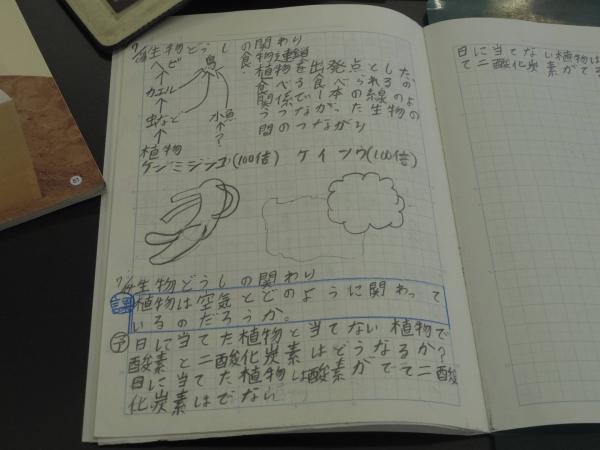 生物どうしの関わり
ヘビ 鳥
カエル
虫など 小魚
植物 ?
食物連鎖
植物を出発点とした、
食べる食べられるの
関係で1本の線のよ
うにつながった生物の
間のつながり
ケンミジンコ(100倍) ケイソウ(100倍)
生物どうしの関わり
課 植物は空気とどのように関わって
いるのだろうか。
予 日に当てた植物と当てない植物で
酸素と二酸化炭素はどうなるか?
日に当てた植物は酸素がでて二酸
化炭素はでない
日に当てない植物は
て二酸化炭素がでる